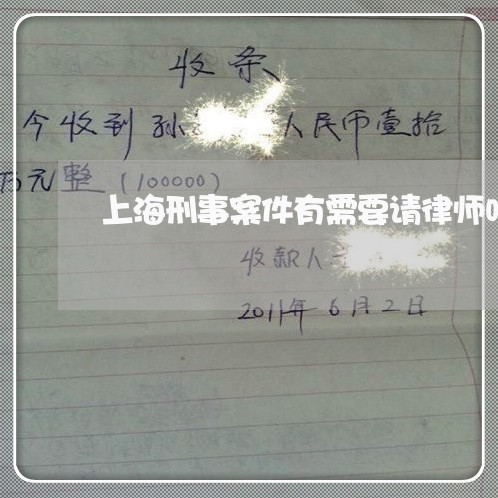 收条
今收到孙 人民币壹拾
万元整(100000)
上海刑事案件有需要请律师
收款人
2011年6月2日